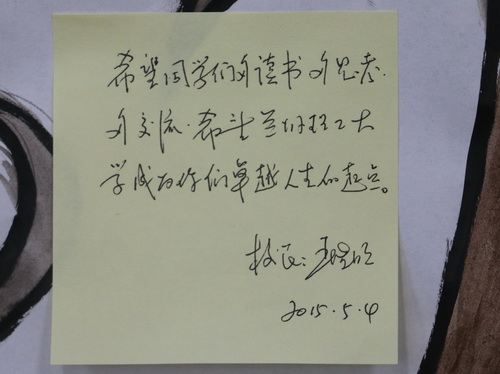 希望同学们多读书多思考.
多交流.希望兰州理工大
学成为你们卓越人生的起点。
校长:王晓明
2015.5.4